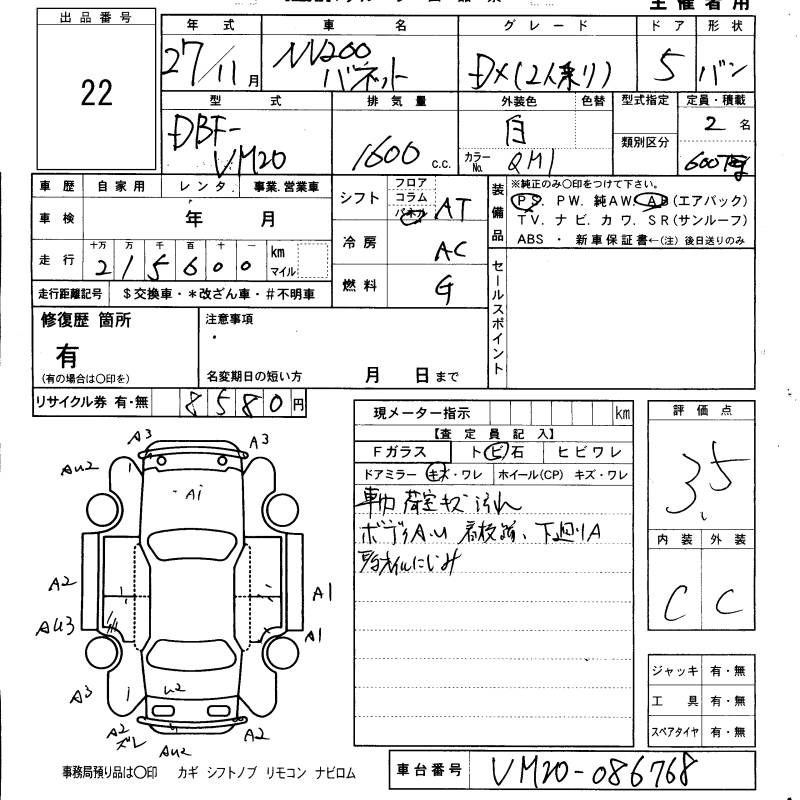 主催者用
出品番号
22
年式 車名 グレード ドア 形状
27/11月 NV200 バネット DX(2人乗り) 5 バン
型式 排気量 外装色 色替 型式指定 定員・積載
DBF-VM20 1600 c.c. 白 カラーNo. QM1 類別区分 2名 600kg
車歴 自家用 レンタ. 事業.営業車
車検 年 月
走行 十万 万 千 百 十 一 km マイル
215600
走行距離記号 $交換車・*改ざん車・#不明車
シフト フロア コラム パネル AT
冷房 AC
燃料 G
装備品
※純正のみ〇印をつけて下さい。
PS. PW. 純AW. AB(エアバック)
TV. ナビ. カワ. SR(サンルーフ)
ABS ・ 新車保証書←(注) 後日送りのみ
セールスポイント
修復歴 箇所
有
(有の場合は〇印を)
注意事項
名変期日の短い方 月 日まで
リサイクル券 有・無 8580円
現メーター指示 km
【査定員記入】
Fガラス トビ石 ヒビワレ
ドアミラー キズ・ワレ ホイール(CP) キズ・ワレ
車内 荷室キズ 汚れ
ボディA.U 看板跡、下廻りA
オイルにじみ
評価点
3.5
内装 外装
C C
ジャッキ 有・無
工具 有・無
スペアタイヤ 有・無
A3 A3
AU2
A1
A2 A1
AU3 A1
A3 U2
A2 ズレ AU2 A2
事務局預り品は〇印 カギ シフトノブ リモコン ナビロム
車台番号 VM20-086768